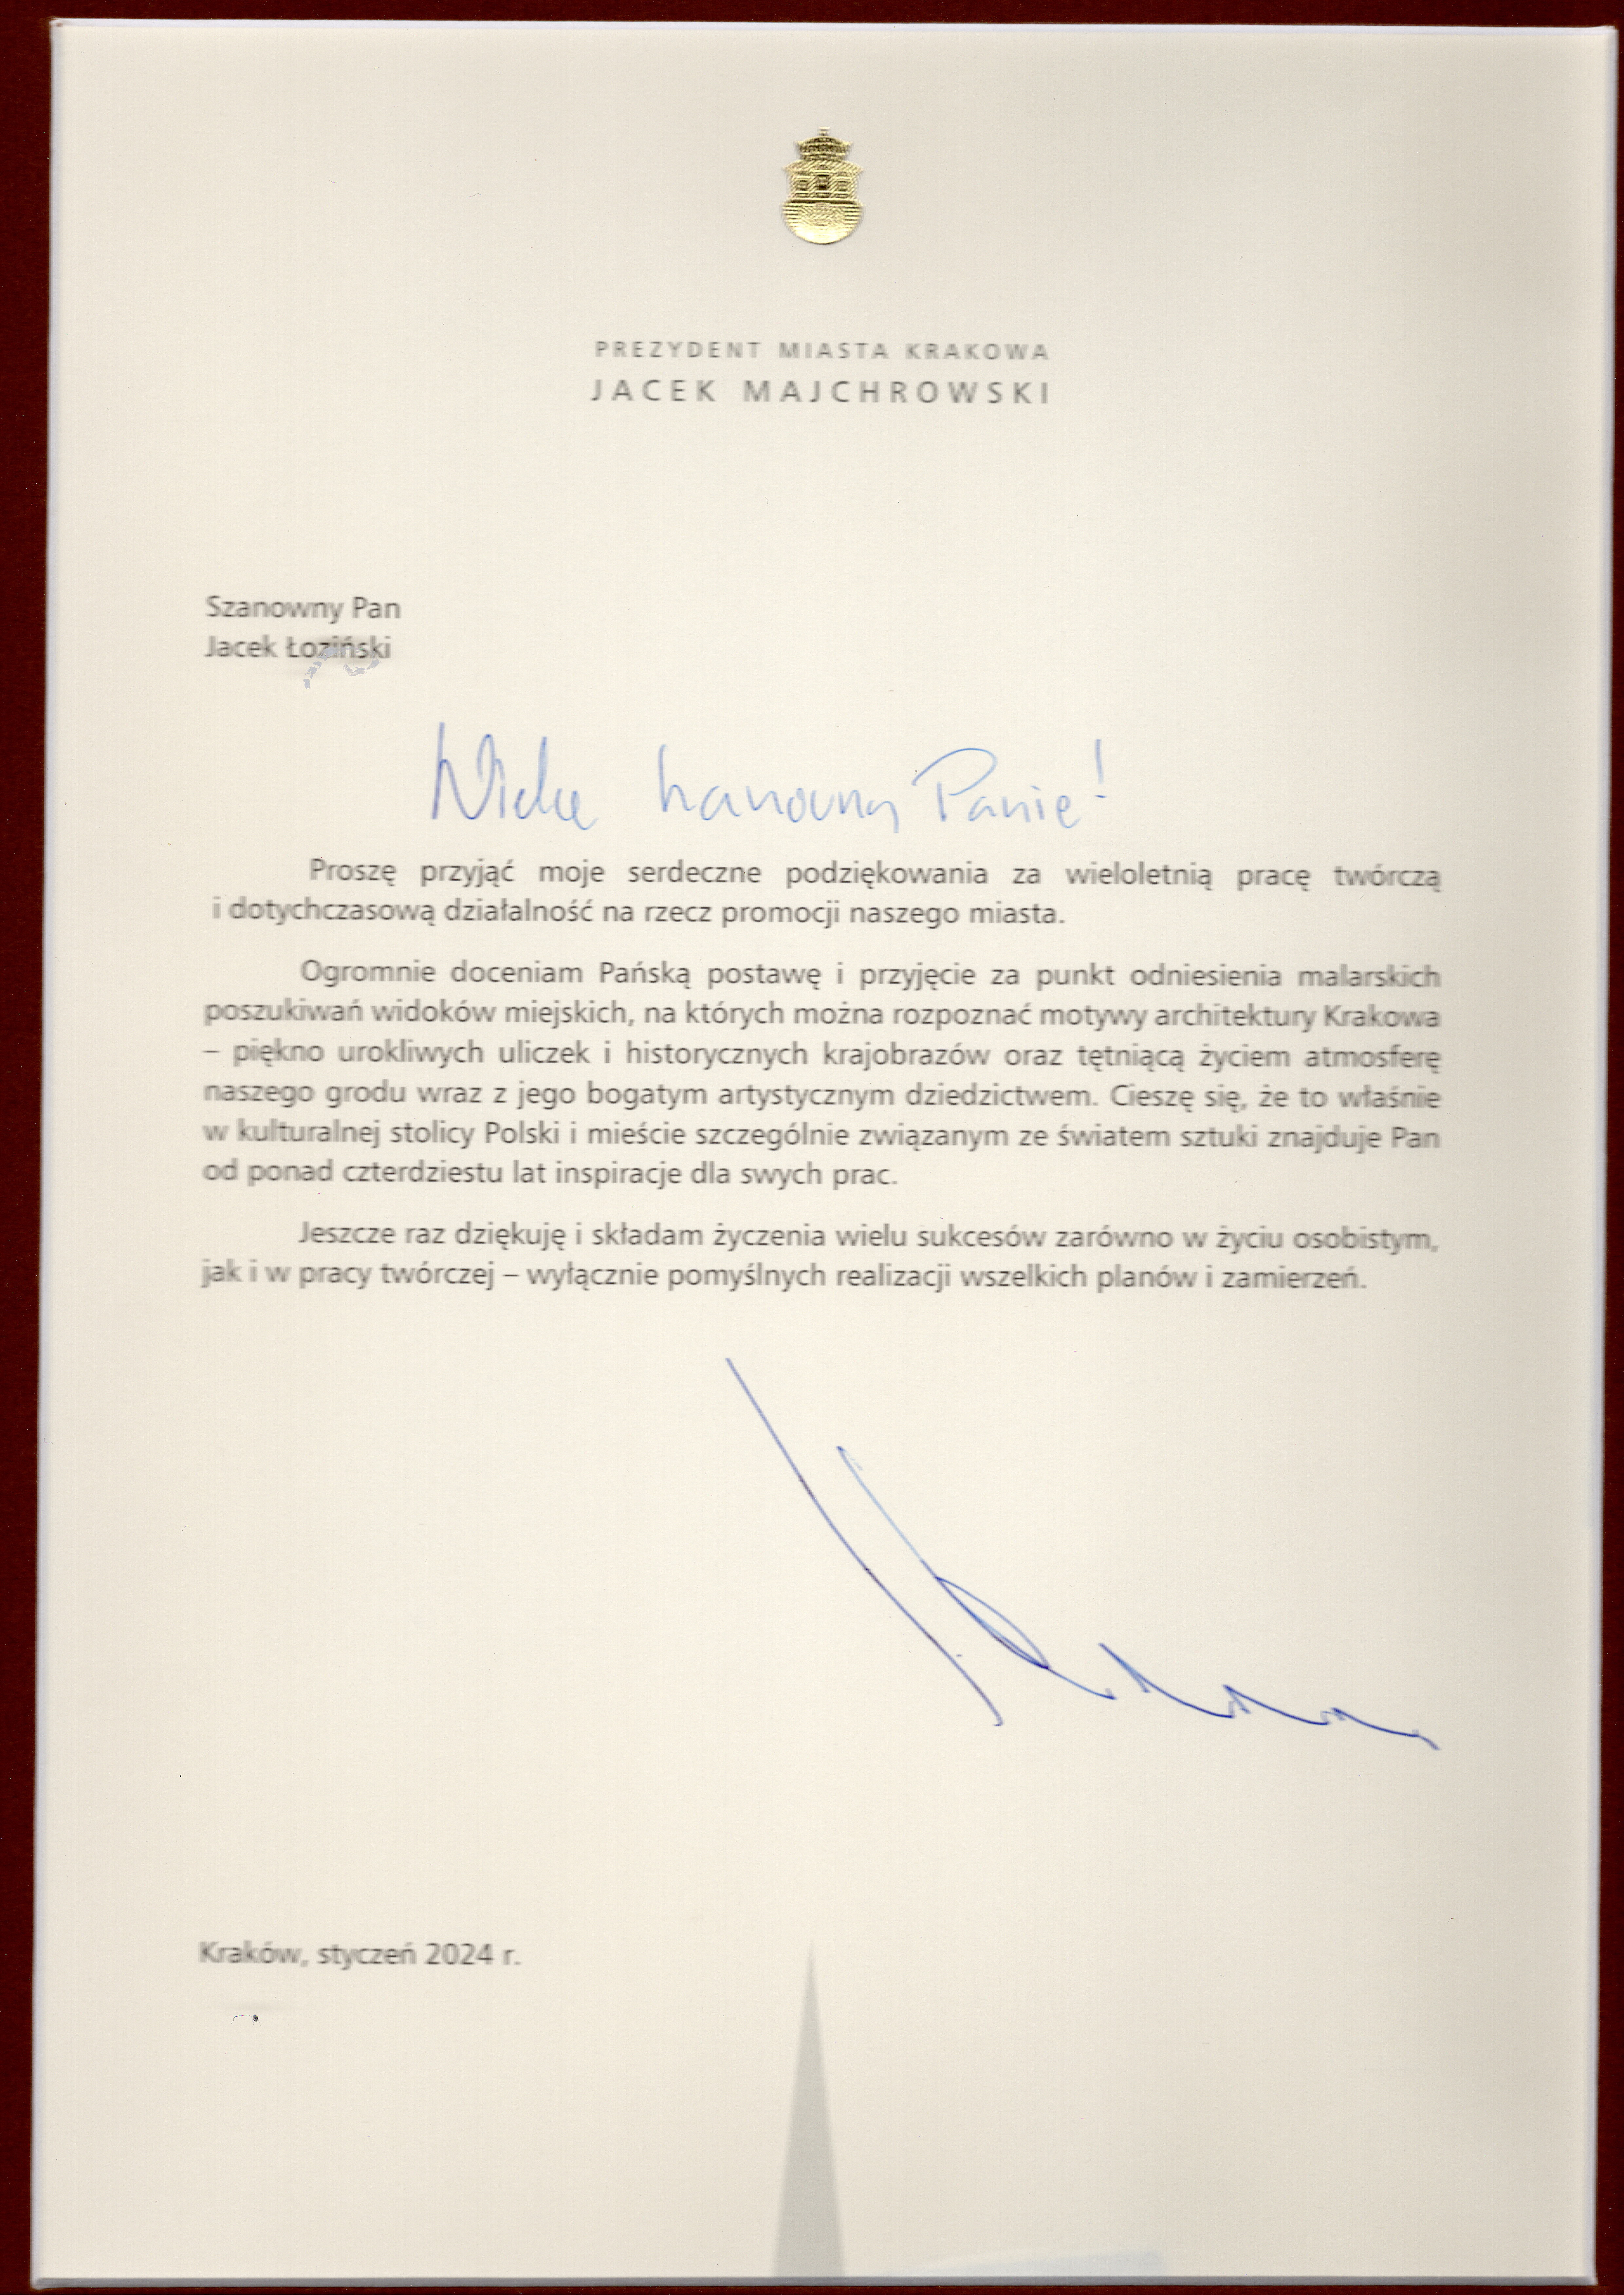 PREZYDENT MIASTA KRAKOWA
JACEK MAJCHROWSKI
Szanowny Pan
Jacek Łoziński
Panie!
Proszę przyjąć moje serdeczne podziękowania za wieloletnią pracę twórczą
i dotychczasową działalność na rzecz promocji naszego miasta.
Ogromnie doceniam Pańską postawę i przyjęcie za punkt odniesienia malarskich
poszukiwań widoków miejskich, na których można rozpoznać motywy architektury Krakowa
– piękno urokliwych uliczek i historycznych krajobrazów oraz tętniącą życiem atmosferę
naszego grodu wraz z jego bogatym artystycznym dziedzictwem. Cieszę się, że to właśnie
w kulturalnej stolicy Polski i mieście szczególnie związanym ze światem sztuki znajduje Pan
od ponad czterdziestu lat inspiracje dla swych prac.
Jeszcze raz dziękuję i składam życzenia wielu sukcesów zarówno w życiu osobistym,
jak i w pracy twórczej – wyłącznie pomyślnych realizacji wszelkich planów i zamierzeń.
Kraków, styczeń 2024 r.